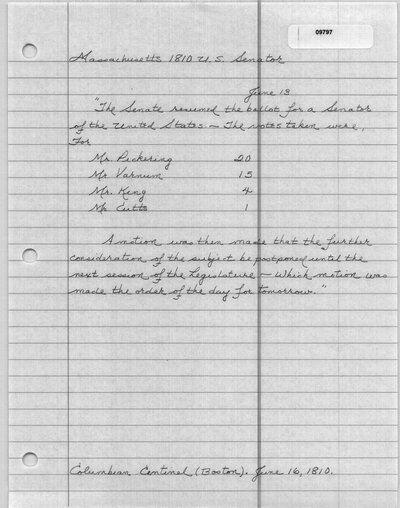 09797
Massachusetts 1810 U.S. Senator
June 13
"The Senate resumed the ballot for a Senator
of the United States — The votes taken were,
For
Mr. Pickering 20
Mr Varnum 15
Mr. King 4
Mr. Cutts 1
A motion was then made that the further
consideration of the subject be postponed until the
next session of the Legislature — Which motion was
made the order of the day for tomorrow."
Columbian Centinel (Boston). June 16, 1810.